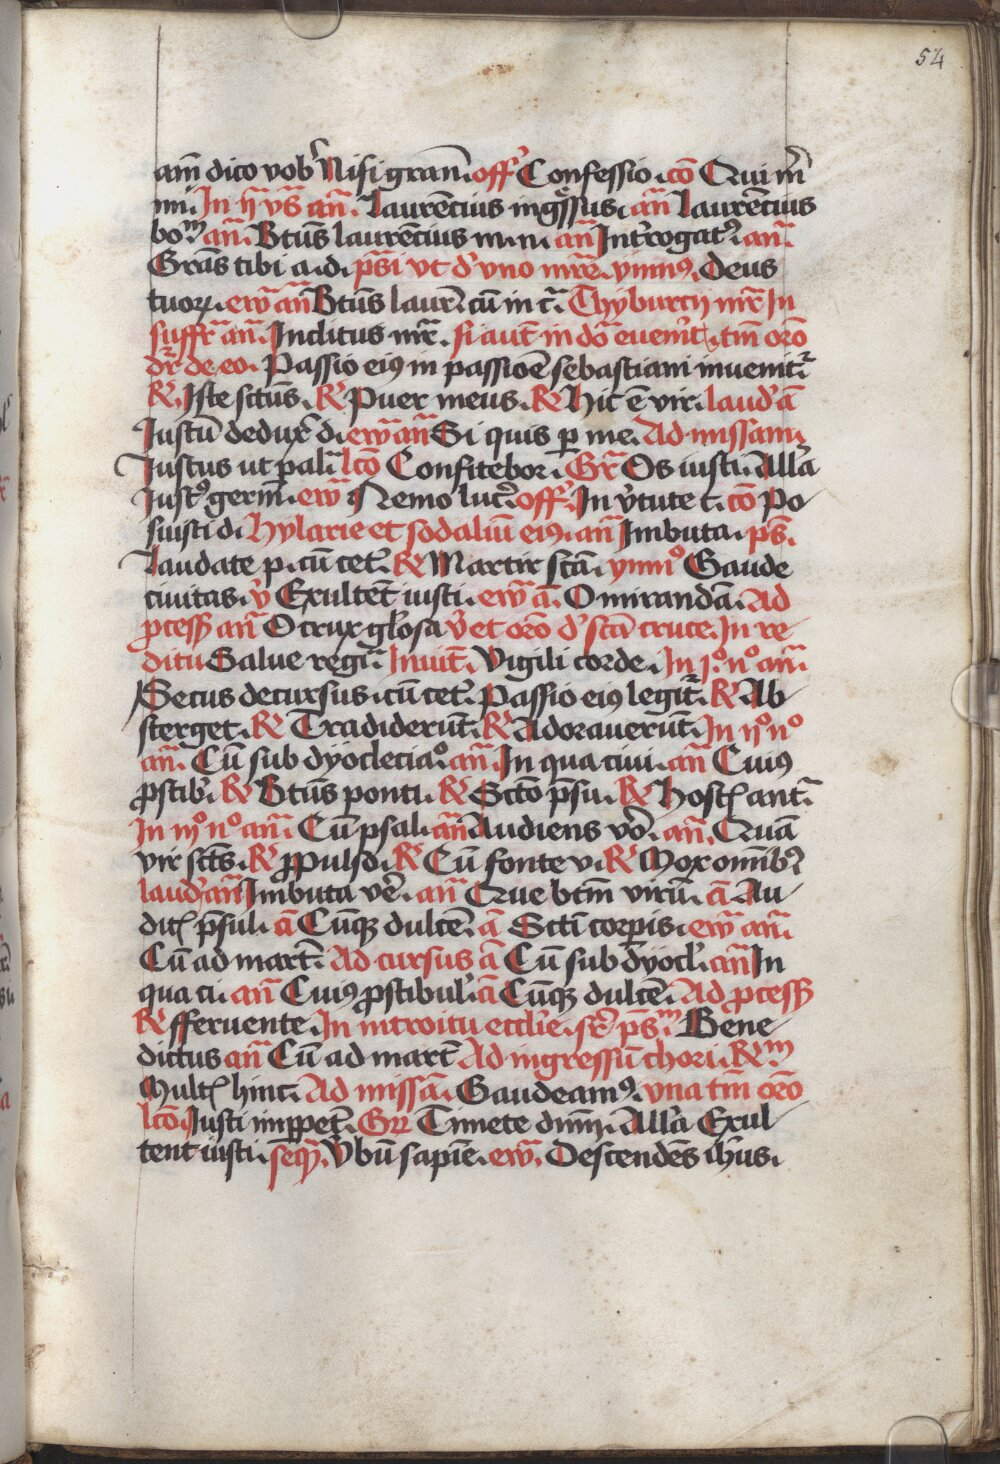 54
am̄ dico vob Nisi gran̄. off Confessio. cō Qui m̄
mi. In ij vs̄ an̄. Laurēcius ingssus. an̄ Laurēcius
bo an̄. Btūs laurēcius m. n. an̄ Introgatꝰ an̄.
Grās tibi a. d. ps̄i vt d' vno mr̄e. ymnꝰ. Deus
tuoꝝ. ew̄ an̄ Btūs laureñ cū in c. Thyburcij mr̄ In
suffr̄ an̄. Inclitus mr̄. si aut̄ in dō euenit̄. tm̄ orō
dr̄ de eo. Passio eiꝰ in passiōe sebastiani inuenit.
℟. Iste sctūs. ℟ Puer meus. ℟ Hic ē vir. laud' ā
Iustū dedux̄ d. ew̄ an̄ Si quis p me. Ad missam.
Iustus ut pal. lcō Confitebor. Gr̄ Os iusti. Alla
Iustꝰ germ̄. ew̄ Nemo luc. off. In v̄tute t. cō Po
suisti d. Hylarie et sodaliū eiꝰ. an̄ Imbuta. ps̄.
Laudate p. cū cet. ℟ Martir sc̄ā. ymnꝰ Gaude
ciuitas. v̄ Exultēt iusti. ew̄ ā. O mirandā. Ad
pcess an̄ O crux glosa v̄ et orō d' sc̄ā cruce. In re
ditu Salue regī. Inuit̄. Vigili corde. In jº nº an̄.
Secus decursus. cū cet. Passio eiꝰ legit. ℟ Ab
sterget. ℟ Tradiderūt. ℟ Adorauerūt. In ijº nº
an̄. Cū sub dyoclecia. an̄. In qua ciui. an̄ Cuiꝰ
pstib. ℟ Btūs ponti. ℟ Sctō ps̄u. ℟ Hostꝭ ant.
In iijº nº an̄. Cū psal. an̄ Audiens vō. an̄. Quā
vir scts̄. ℟ Ppulsꝰ. ℟ Cū fonte v. ℟ Mox omībꝰ
laud' an̄ Imbuta vē. an̄ Que btm̄ virū. ā Au
ditꝭ ps̄ul. ā Cūqꝫ dulcē. ā Scti corpis. ew̄ an̄.
Cū ad mart. Ad cursus ā Cū sub dyocl. an̄ In
qua ci. an̄ Cuiꝰ pstibul. ā Cūqꝫ dulcē. Ad pcess
℟ fferuente. In introitu ecclie. ps̄ Bene
dictus an̄ Cū ad mart̄ Ad ingressū chori. ℟
Multꝭ hinc. Ad missā. Gaudeamꝰ. vna tm̄ orō
lcō. Iusti impꝑet. Gr̄ Timete dnm̄. Alla Exul
tent iusti. seq̄. Vbū sapīe. ew̄. Descendēs ihus.